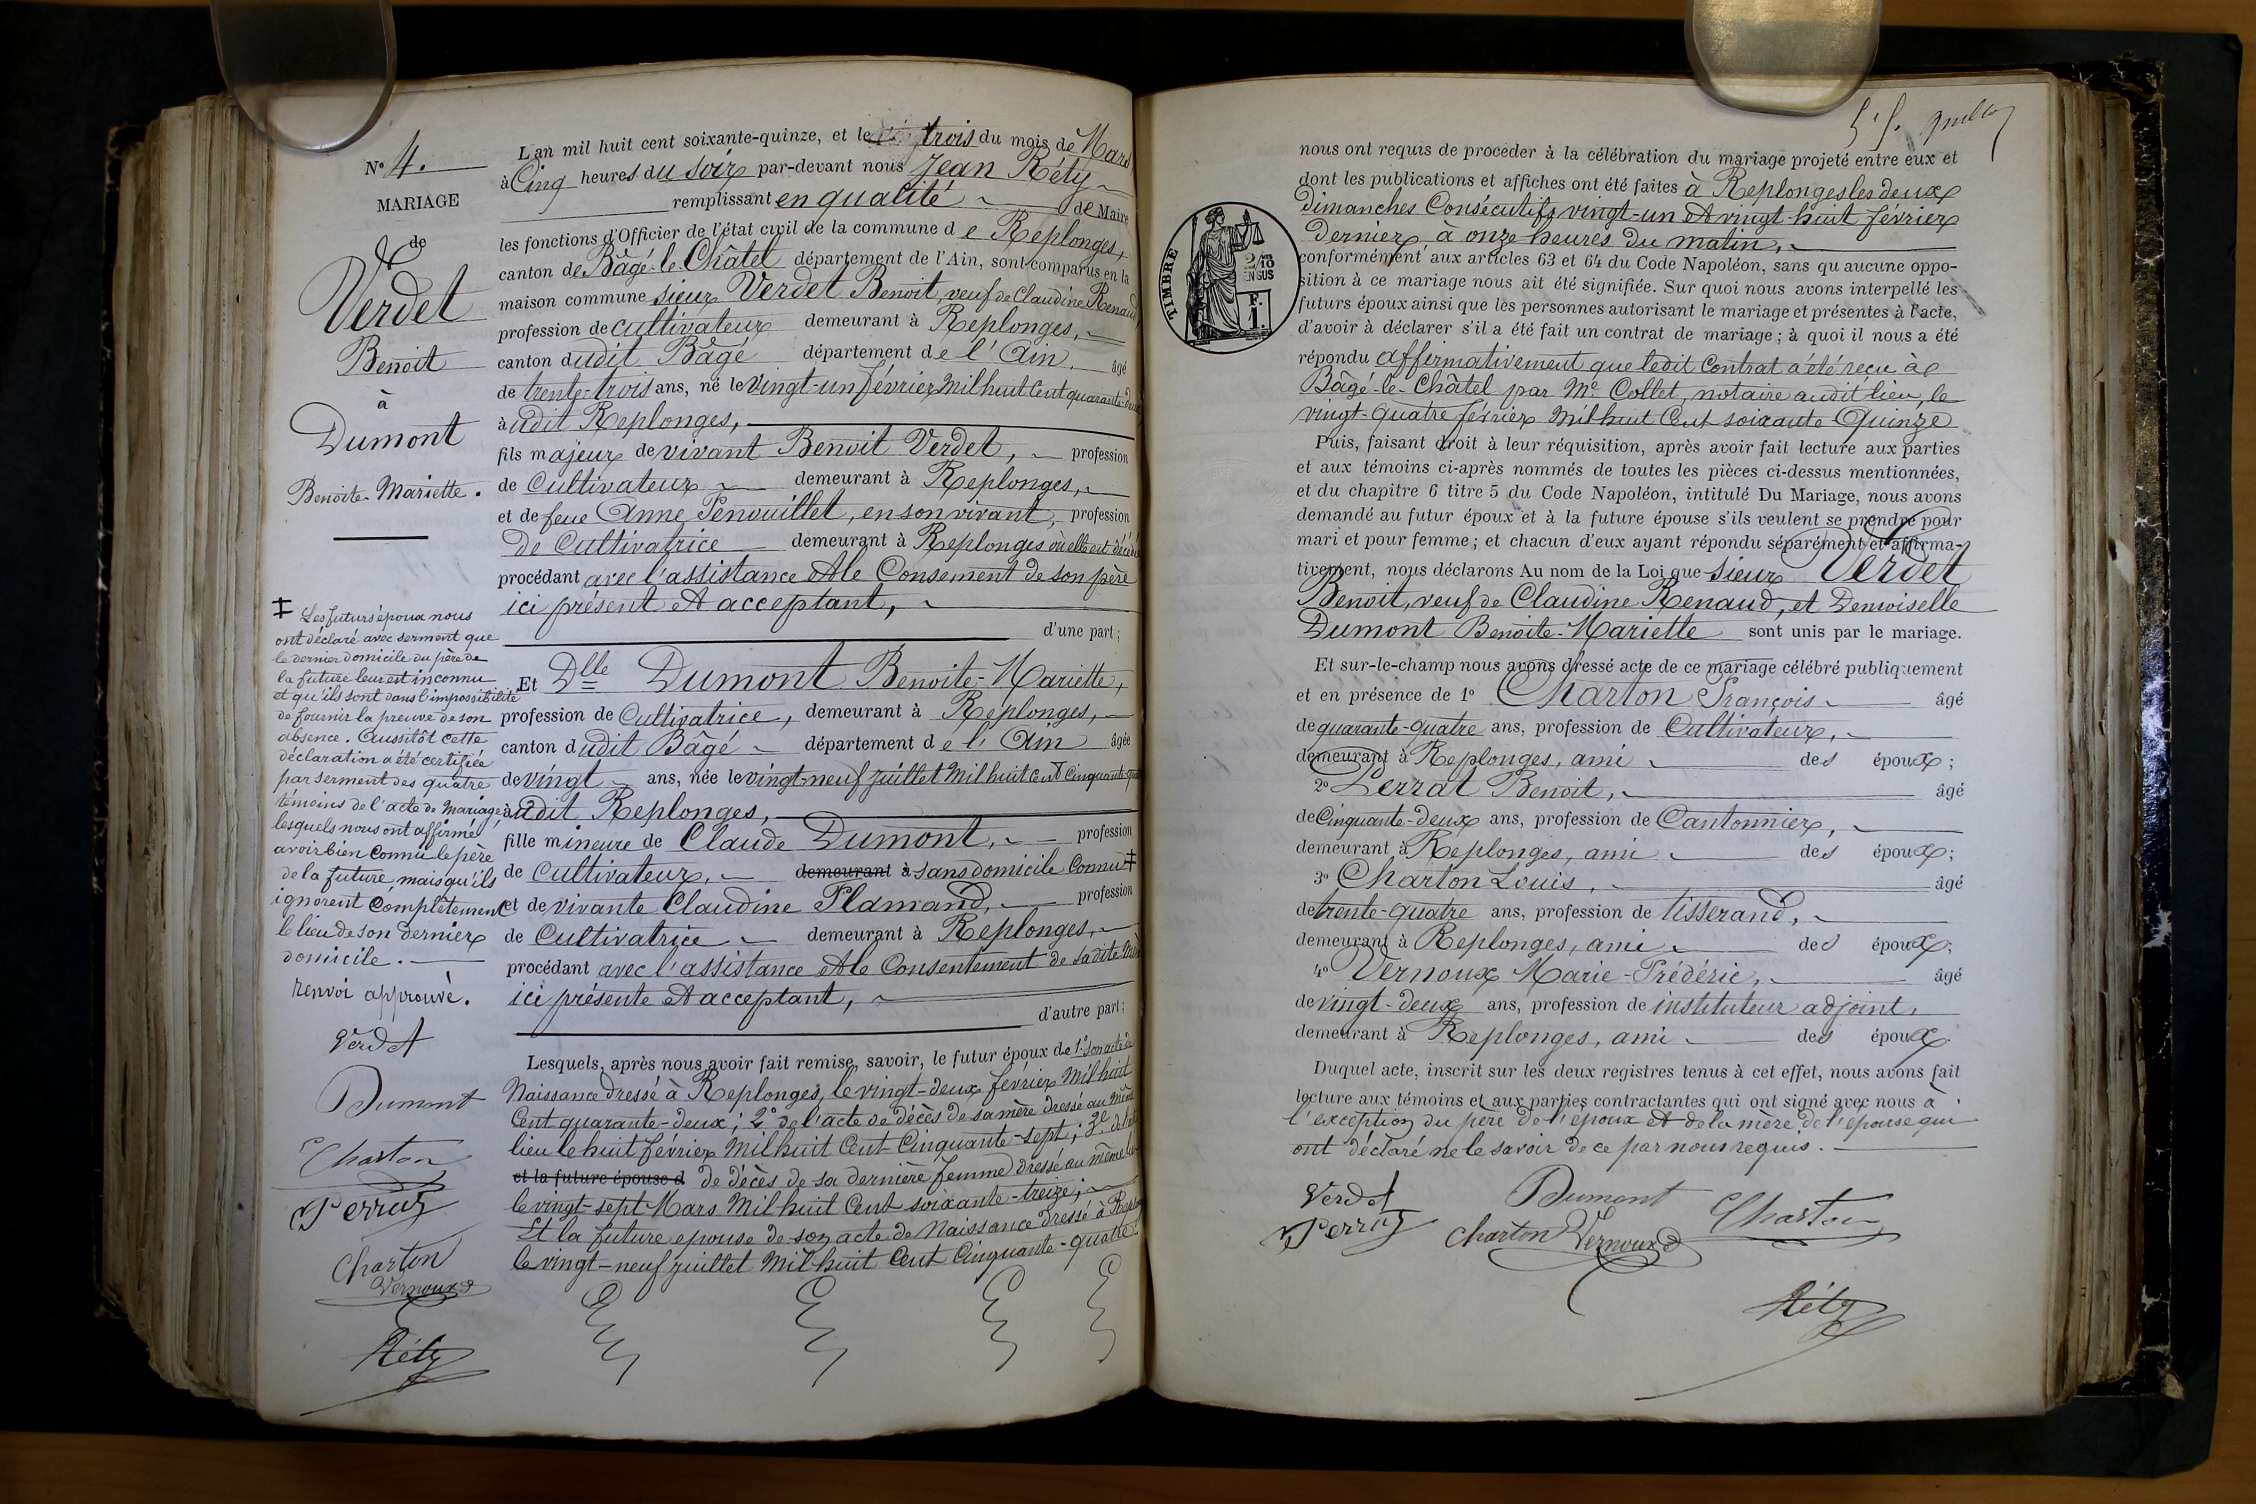 N° 4.
MARIAGE
de
Verdet
Benoit
à
Dumont
Benoite-Mariette.
‡ Les futurs époux nous
ont déclaré avec serment que
le dernier domicile du père de
la future leur est inconnu
et qu'ils sont dans l'impossibilité
de fournir la preuve de son
absence. Aussitôt cette
déclaration a été certifiée
par serment des quatre
témoins de l'acte de mariage,
lesquels nous ont affirmé
avoir bien connu le père
de la future, mais qu'ils
ignorent complètement
le lieu de son dernier
domicile.
renvoi approuvé.
Verdet
Dumont
Charton
Charton
Vernoux
Réty
L'an mil huit cent soixante-quinze, et le trois du mois de Mars
à Cinq heures du soir par-devant nous Jean Réty
remplissant en qualité de Maire
les fonctions d'Officier de l'état civil de la commune de Replonges,
canton de Bâgé-le-Châtel département de l'Ain, sont comparus en la
maison commune sieur Verdet Benoit, veuf de Claudine Renaud,
profession de cultivateur demeurant à Replonges,
canton dudit Bâgé département de l'Ain âgé
de trente-trois ans, né le vingt-un février mil huit cent quarante-deux
à udit Replonges,
fils majeur de vivant Benoit Verdet, profession
de Cultivateur demeurant à Replonges,
et de feue Anne Penouillet, en son vivant, profession
De Cultivatrice demeurant à Replonges où elle est décédée
procédant avec l'assistance et le Consement de son père
ici présent et acceptant,
d'une part;
Et Dlle Dumont Benoite-Mariette,
profession de Cultivatrice, demeurant à Replonges,
canton dudit Bâgé département de l'Ain âgée
de vingt ans, née le vingt-neuf juillet mil huit cent cinquante-quatre
à udit Replonges,
fille mineure de Claude Dumont, profession
de Cultivateur, demeurant à sans domicile connu ‡
et de vivante Claudine Flamand, profession
de Cultivatrice demeurant à Replonges,
procédant avec l'assistance et le Consentement de sa dite mère
ici présente et acceptant,
d'autre part;
Lesquels, après nous avoir fait remise, savoir, le futur époux de 1° son acte de
Naissance dressé à Replonges, le vingt-deux février mil huit
Cent quarante-deux; 2° de l'acte de décès de sa mère dressé au même
lieu le huit février mil huit Cent Cinquante-sept; 3° de l'acte
et la future épouse d de décès de sa dernière femme dressé au même lieu
le vingt-sept Mars mil huit Cent soixante-treize;
Et la future épouse de son acte de Naissance dressé à Replonges
le vingt-neuf juillet mil huit Cent Cinquante-quatre.
nous ont requis de procéder à la célébration du mariage projeté entre eux et
dont les publications et affiches ont été faites à Replonges les deux
dimanches Consécutifs vingt-un et vingt-huit février
dernier, à onze heures du matin,
conformément aux articles 63 et 64 du Code Napoléon, sans qu'aucune oppo-
sition à ce mariage nous ait été signifiée. Sur quoi nous avons interpellé les
futurs époux ainsi que les personnes autorisant le mariage et présentes à l'acte,
d'avoir à déclarer s'il a été fait un contrat de mariage; à quoi il nous a été
répondu affirmativement que ledit Contrat a été reçu à
Bâgé-le-Châtel par Me Collet, notaire audit lieu, le
vingt-quatre février mil huit Cent soixante-Quinze
Puis, faisant droit à leur réquisition, après avoir fait lecture aux parties
et aux témoins ci-après nommés de toutes les pièces ci-dessus mentionnées,
et du chapitre 6 titre 5 du Code Napoléon, intitulé Du Mariage, nous avons
demandé au futur époux et à la future épouse s'ils veulent se prendre pour
mari et pour femme; et chacun d'eux ayant répondu séparément et affirma-
tivement, nous déclarons Au nom de la Loi que sieur Verdet
Benoit, veuf de Claudine Renaud, et Demoiselle
Dumont Benoite-Mariette sont unis par le mariage.
Et sur-le-champ nous avons dressé acte de ce mariage célébré publiquement
et en présence de 1° Charton François âgé
de quarante-quatre ans, profession de Cultivateur,
demeurant à Replonges, ami des époux;
2° Perrat Benoit, âgé
de Cinquante-deux ans, profession de Cantonnier,
demeurant à Replonges, ami des époux;
3° Charton Louis, âgé
de trente-quatre ans, profession de tisserand,
demeurant à Replonges, ami des époux;
4° Vernoux Marie-Frédéric, âgé
de vingt-deux ans, profession de instituteur adjoint,
demeurant à Replonges, ami des époux.
Duquel acte, inscrit sur les deux registres tenus à cet effet, nous avons fait
lecture aux témoins et aux parties contractantes qui ont signé avec nous à
l'exception du père de l'époux et de la mère de l'épouse qui
ont déclaré ne le savoir de ce par nous requis.
Verdet Dumont Charton
Charton Vernoux
Réty
TIMBRE
2/10
EN SUS
F.
1.